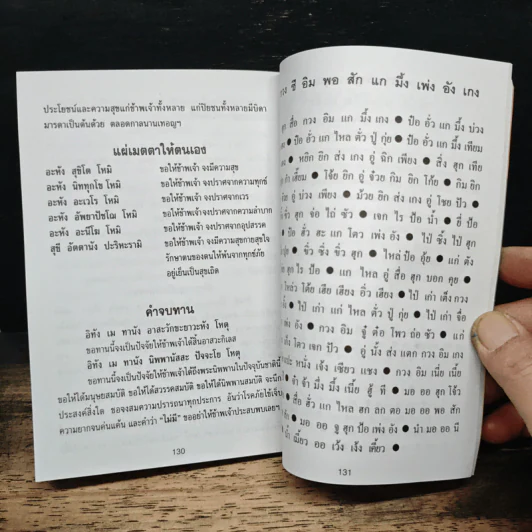 ประโยชน์และความสุขแก่ข้าพเจ้าทั้งหลาย แก่ปิยชนทั้งหลายมีบิดา
มารดาเป็นต้นด้วย ตลอดกาลนานเทอญฯ
แผ่เมตตาให้ตนเอง
อะหัง สุขิโต โหมิ ขอให้ข้าพเจ้า จงมีความสุข
อะหัง นิททุกโข โหมิ ขอให้ข้าพเจ้า จงปราศจากความทุกข์
อะหัง อะเวโร โหมิ ขอให้ข้าพเจ้า จงปราศจากเวร
อะหัง อัพยาปัชโฌ โหมิ ขอให้ข้าพเจ้า จงปราศจากความลำบาก
อะหัง อะนีโฆ โหมิ ขอให้ข้าพเจ้า จงปราศจากอุปสรรค
สุขี อัตตานัง ปะริหะรามิ ขอให้ข้าพเจ้า จงมีความสุขกายสุขใจ
รักษาตนของตนให้พ้นจากทุกข์ภัย
อยู่เย็นเป็นสุขเถิด
คำจบทาน
อิทัง เม ทานัง อาสะวักขะยาวะหัง โหตุ
ขอทานนี้จงเป็นปัจจัยให้ข้าพเจ้าได้สิ้นอาสวะกิเลส
อิทัง เม ทานัง นิพพานัสสะ ปัจจะโย โหตุ
ขอทานนี้จงเป็นปัจจัยให้ข้าพเจ้าได้ถึงพระนิพพานในปัจจุบันชาตินี้
ขอให้ได้มนุษยสมบัติ ขอให้ได้สวรรคสมบัติ ขอให้ได้นิพพานสมบัติ จะนึก
ประสงค์สิ่งใด ขอจงสมความปรารถนาทุกประการ อันว่าโรคภัยไข้เจ็บ
ความยากจนค่นแค้น และคำว่า "ไม่มี" ขออย่าให้ข้าพเจ้าประสบพบเลยฯ
130
กวง ซี อิม พอ สัก แก มึ้ง เพ่ง อัง เกง
สื่อ กวง อิม แก มึ้ง เกง ● ป๊อ อั่ว แก มึ้ง บ่วง
● ป๊อ อั่ว แก ไหล ตั่ว ปู่ กุ่ย ● ป๊อ อั่ว แก มึ้ง เทียม
● หยิก ยิก ส่ง เกง อู่ ฉิก เพียง ● สิ่ง ฮุก เทีย
เตี้ยม ● โค้ย ยิก อู่ จ๋วย กิม ยิก โก้ย ● กิม ยิก
อู่ บ่วง เพียง ● ม้วย ยิก ส่ง เกง อู่ ไชย ปัว ●
ฮุก จ่อ ไถ่ ซัว ● เจก ไร ป้อ น้ำ ● ยี่ ป้อ
● ป้อ ฮั่ว สะ แก โตว เพ่ง อัง ● ไป่ ซิ้ง ไป่ ฮุก
● ซิ่ว ซิ่ง ซิ่ว ฮุก ● ไหล่ ป้อ อุ้ย ● แก่ ตัง
ฮุก ไร ป้อ ● แก ไหล อู่ สื่อ ฮุก บอก คุย ●
ไหล่ว โต้ย เฮีย เฮียง อิ่ว เฮียง ● ไป่ เก่า เต็ง กวง
● ไป่ เก่า แก่ ไหล ตั่ว ปู่ กุ่ย ● ไป่ เก่า จื้อ
เพ่ง อัง ● กวง อิม
● อู่ นั้ง ส่ง แดก กวง อิม เกง
หนั่ง เจ้ง เซียว แชง ● กวง อิม เนี่ย เนี้ย
● มอ ออ ฮุก โจ้ว
● สื่อ ฮั่ว แก ไหล สก ลก ตอ มอ ออ พอ สัก
● มอ ออ จู ฮุก ป้อ เพ่ง อัง ● นำ มอ ออ นี
131